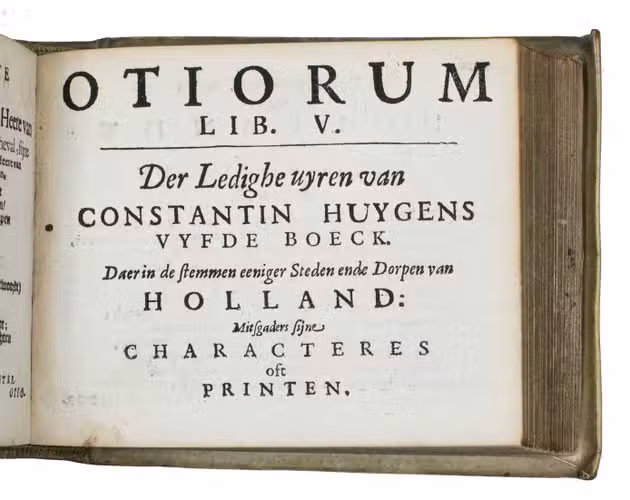 TE
Heere van
heval, sijne
OTIORUM
LIB. V.
Der Ledighe uyren van
CONSTANTIN HUYGENS
VYFDE BOECK.
Daer in de stemmen eeniger Steden ende Dorpen van
HOLLAND:
Mitsgaders sijne
CHARACTERES
oft
PRINTEN.